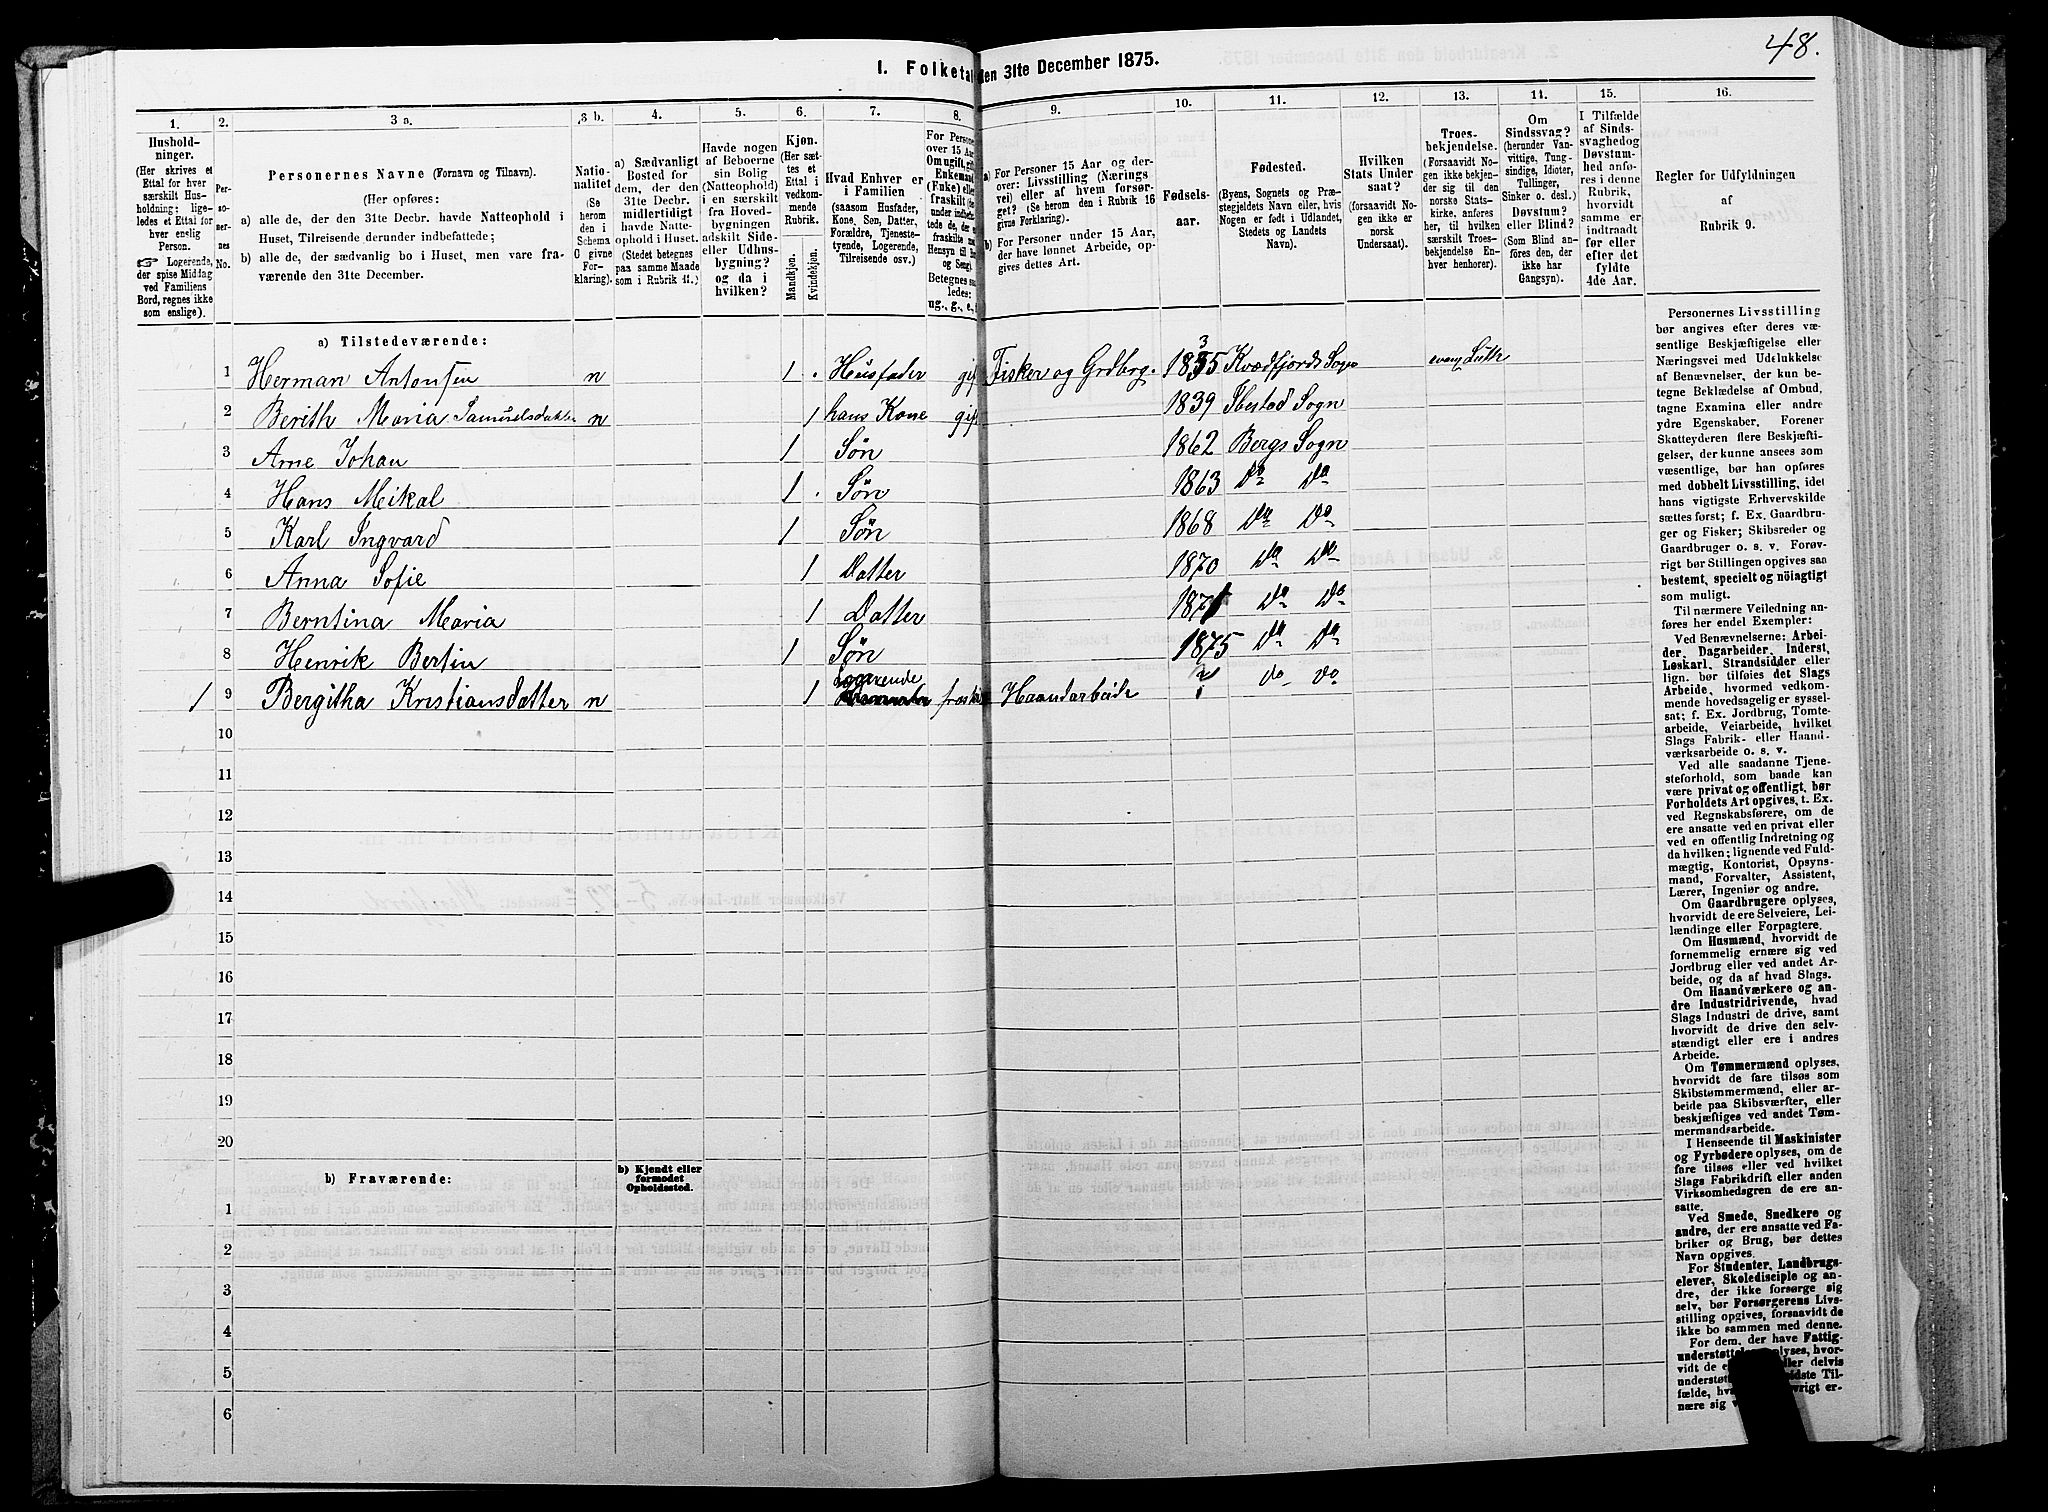 48.
I. Folketal den 31te December 1875.
1. 2. 3 a. 3 b. 4. 5. 6. 7. 8. 9. 10. 11. 12. 13. 14. 15. 16.
Hushold-
ninger.
(Her skrives et
Ettal for hver
særskilt Hus-
holdning; lige-
ledes et Ettal for
hver enslig
Person.
☞ Logerende,
der spise Middag
ved Familiens
Bord, regnes ikke
som enslige).
Per-
so-
ner-
nes
No.
Personernes Navne (Fornavn og Tilnavn).
(Her opføres:
a) alle de, der den 31te Decbr. havde Natteophold i
Huset, Tilreisende derunder indbefattede;
b) alle de, der sædvanlig bo i Huset, men vare fra-
værende den 31te December.
Natio-
nalitet
(Se
herom
den i
Schema
C givne
For-
klaring).
a) Sædvanligt
Bosted for
dem, der den
31te Decbr.
midlertidigt
havde Natte-
ophold i Huset.
(Stedet betegnes
paa samme Maade
som i Rubrik 11.)
Havde nogen
af Beboerne
sin Bolig
(Natteophold)
i en særskilt
fra Hoved-
bygningen
adskilt Side-
eller Udhus-
bygning?
og da i
hvilken?
Kjøn.
(Her sæt-
tes et
Ettal i
vedkom-
mende
Rubrik.
Mandkjøn.
Kvindekjøn.
Hvad Enhver er
i Familien
(saasom Husfader,
Kone, Søn, Datter,
Forældre, Tjeneste-
tyende, Logerende,
Tilreisende osv.).
For Persone
over 15 Aar
Om ugift, gift
Enkemand
(Enke) eller
fraskilt
Betegnes saa-
ledes:
ug., g., e.,
a) For Personer 15 Aar og der-
over: Livsstilling (Nærings-
vei) eller af hvem forsør-
get? (Se herom den i Rubrik 16
givne Forklaring).
b) For Personer under 15 Aar,
der have lønnet Arbeide, op-
gives dettes Art.
Fødsels-
aar.
Fødested.
(Byens, Sognets og Præ-
stegjeldets Navn eller, hvis
Nogen er født i Udlandet,
Stedets og Landets
Navn).
Hvilken
Stats Under
saat?
(forsaavidt No-
gen ikke er
norsk
Undersaat).
Troes-
bekjendelse.
(Forsaavidt No-
gen ikke bekjen-
der sig til den
norske Stats-
kirke, anføres
her, til hvilken
særskilt Troes-
bekjendelse En-
hver henhører).
Om
Sindssvag?
(herunder Van-
vittige, Tung-
sindige, Idioter,
Tullinger,
Sinker o. desl.)
Døvstum?
eller Blind?
(Som Blind an-
føres den, der
ikke har
Gangsyn).
I Tilfælde
af Sinds-
svaghed og
Døvstum-
hed anfø-
res i denne
Rubrik,
hvorvidt
samme er
indtraadt
før eller
efter det
fyldte
4de Aar.
Regler for Udfyldningen
af
Rubrik 9.
a) Tilstedeværende:
1 Herman Antonsen n 1 Husfader gift Fisker og Grdbrg. 1835 Kvædfjords Sogn evang Luth
2 Berith Maria Samuelsdatter n 1 hans Kone gift 1839 Ibestad Sogn
3 Arne Johan 1 Søn 1862 Bergs Sogn
4 Hans Mikal 1 Søn 1863 Do Do
5 Karl Ingvard 1 Søn 1868 Do Do
6 Anna Sofie 1 Datter 1870 Do Do
7 Berntina Maria 1 Datter 1871 Do Do
8 Henrik Bertin 1 Søn 1875 Do Do
1 9 Bergitha Kristiansdatter n 1 Logerende Haandarbeide ? Do Do
10
11
12
13
14
15
16
17
18
19
20
b) Fraværende:
b) Kjendt eller
formodet
Opholdssted.
1
2
3
4
5
6
Personernes Livsstilling
bør angives efter deres væ-
sentlige Beskjæftigelse eller
Næringsvei med Udelukkelse
af Benævnelser, der kun be-
tegne Beklædelse af Ombud,
tagne Examina eller andre
ydre Egenskaber. Forener
Skatteyderen flere Beskjæfti-
gelser, der kunne ansees som
væsentlige, bør han opføres
med dobbelt Livsstilling, idet
hans vigtigste Erhvervskilde
sættes først; f. Ex. Gaardbru-
ger og Fisker; Skibsreder og
Gaardbruger o. s. v. Forøv-
rigt bør Stillingen opgives saa
bestemt, specielt og nöiagtigt
som muligt.
Til nærmere Veiledning an-
føres her endel Exempler:
Ved Benævnelserne: Arbei-
der, Dagarbeider, Inderst,
Løskarl, Strandsidder eller
lign. bør tilføies det Slags
Arbeide, hvormed vedkom-
mende hovedsagelig er syssel-
sat; f. Ex. Jordbrug, Tomte-
arbeide, Veiarbeide, hvilket
Slags Fabrik- eller Haand-
værksarbeide o. s. v.
Ved alle saadanne Tjene-
steforhold, som baade kan
være privat og offentligt, bør
Forholdets Art opgives, t. Ex.
ved Regnskabsførere, om de
ere ansatte ved en privat eller
ved en offentlig Indretning og
da hvilken; lignende ved Fuld-
mægtig, Kontorist, Opsyns-
mand, Forvalter, Assistent,
Lærer, Ingeniør og andre.
Om Gaardbrugere oplyses,
hvorvidt de ere Selveiere, Lei-
lændinge eller Forpagtere.
Om Husmænd, hvorvidt de
fornemmelig ernære sig ved
Jordbrug eller ved andet Ar-
beide, og da af hvad Slags.
Om Haandværkere og an-
dre Industridrivende, hvad
Slags Industri de drive, samt
hvorvidt de drive den selv-
stændigt eller ere i andres
Arbeide.
Om Tømmermænd oplyses,
hvorvidt de fare tilsøs som
Skibstømmermænd, eller ar-
beide paa Skibsværfter, eller
beskjæftiges ved andet Tøm-
mermandsarbeide.
I Henseende til Maskinister
og Fyrbødere oplyses, om de
fare tilsøs eller ved hvilket
Slags Fabrikdrift eller anden
Virksomhedsgren de ere an-
satte.
Ved Smede, Snedkere og
andre, der ere ansatte ved Fa-
briker og Brug, bør dettes
Navn opgives.
For Studenter, Landbrugs-
elever, Skoledisciple og an-
dre, der ikke forsørge sig
selv, bør Forsørgerens Livs-
stilling opgives, forsaavidt de
ikke bo sammen med denne.
For dem, der have Fattig-
understøttelse, oplyses, hvor-
vidt de eller delvis
understøt sidste Til-
fælde, hv vrigt er-
nære sig